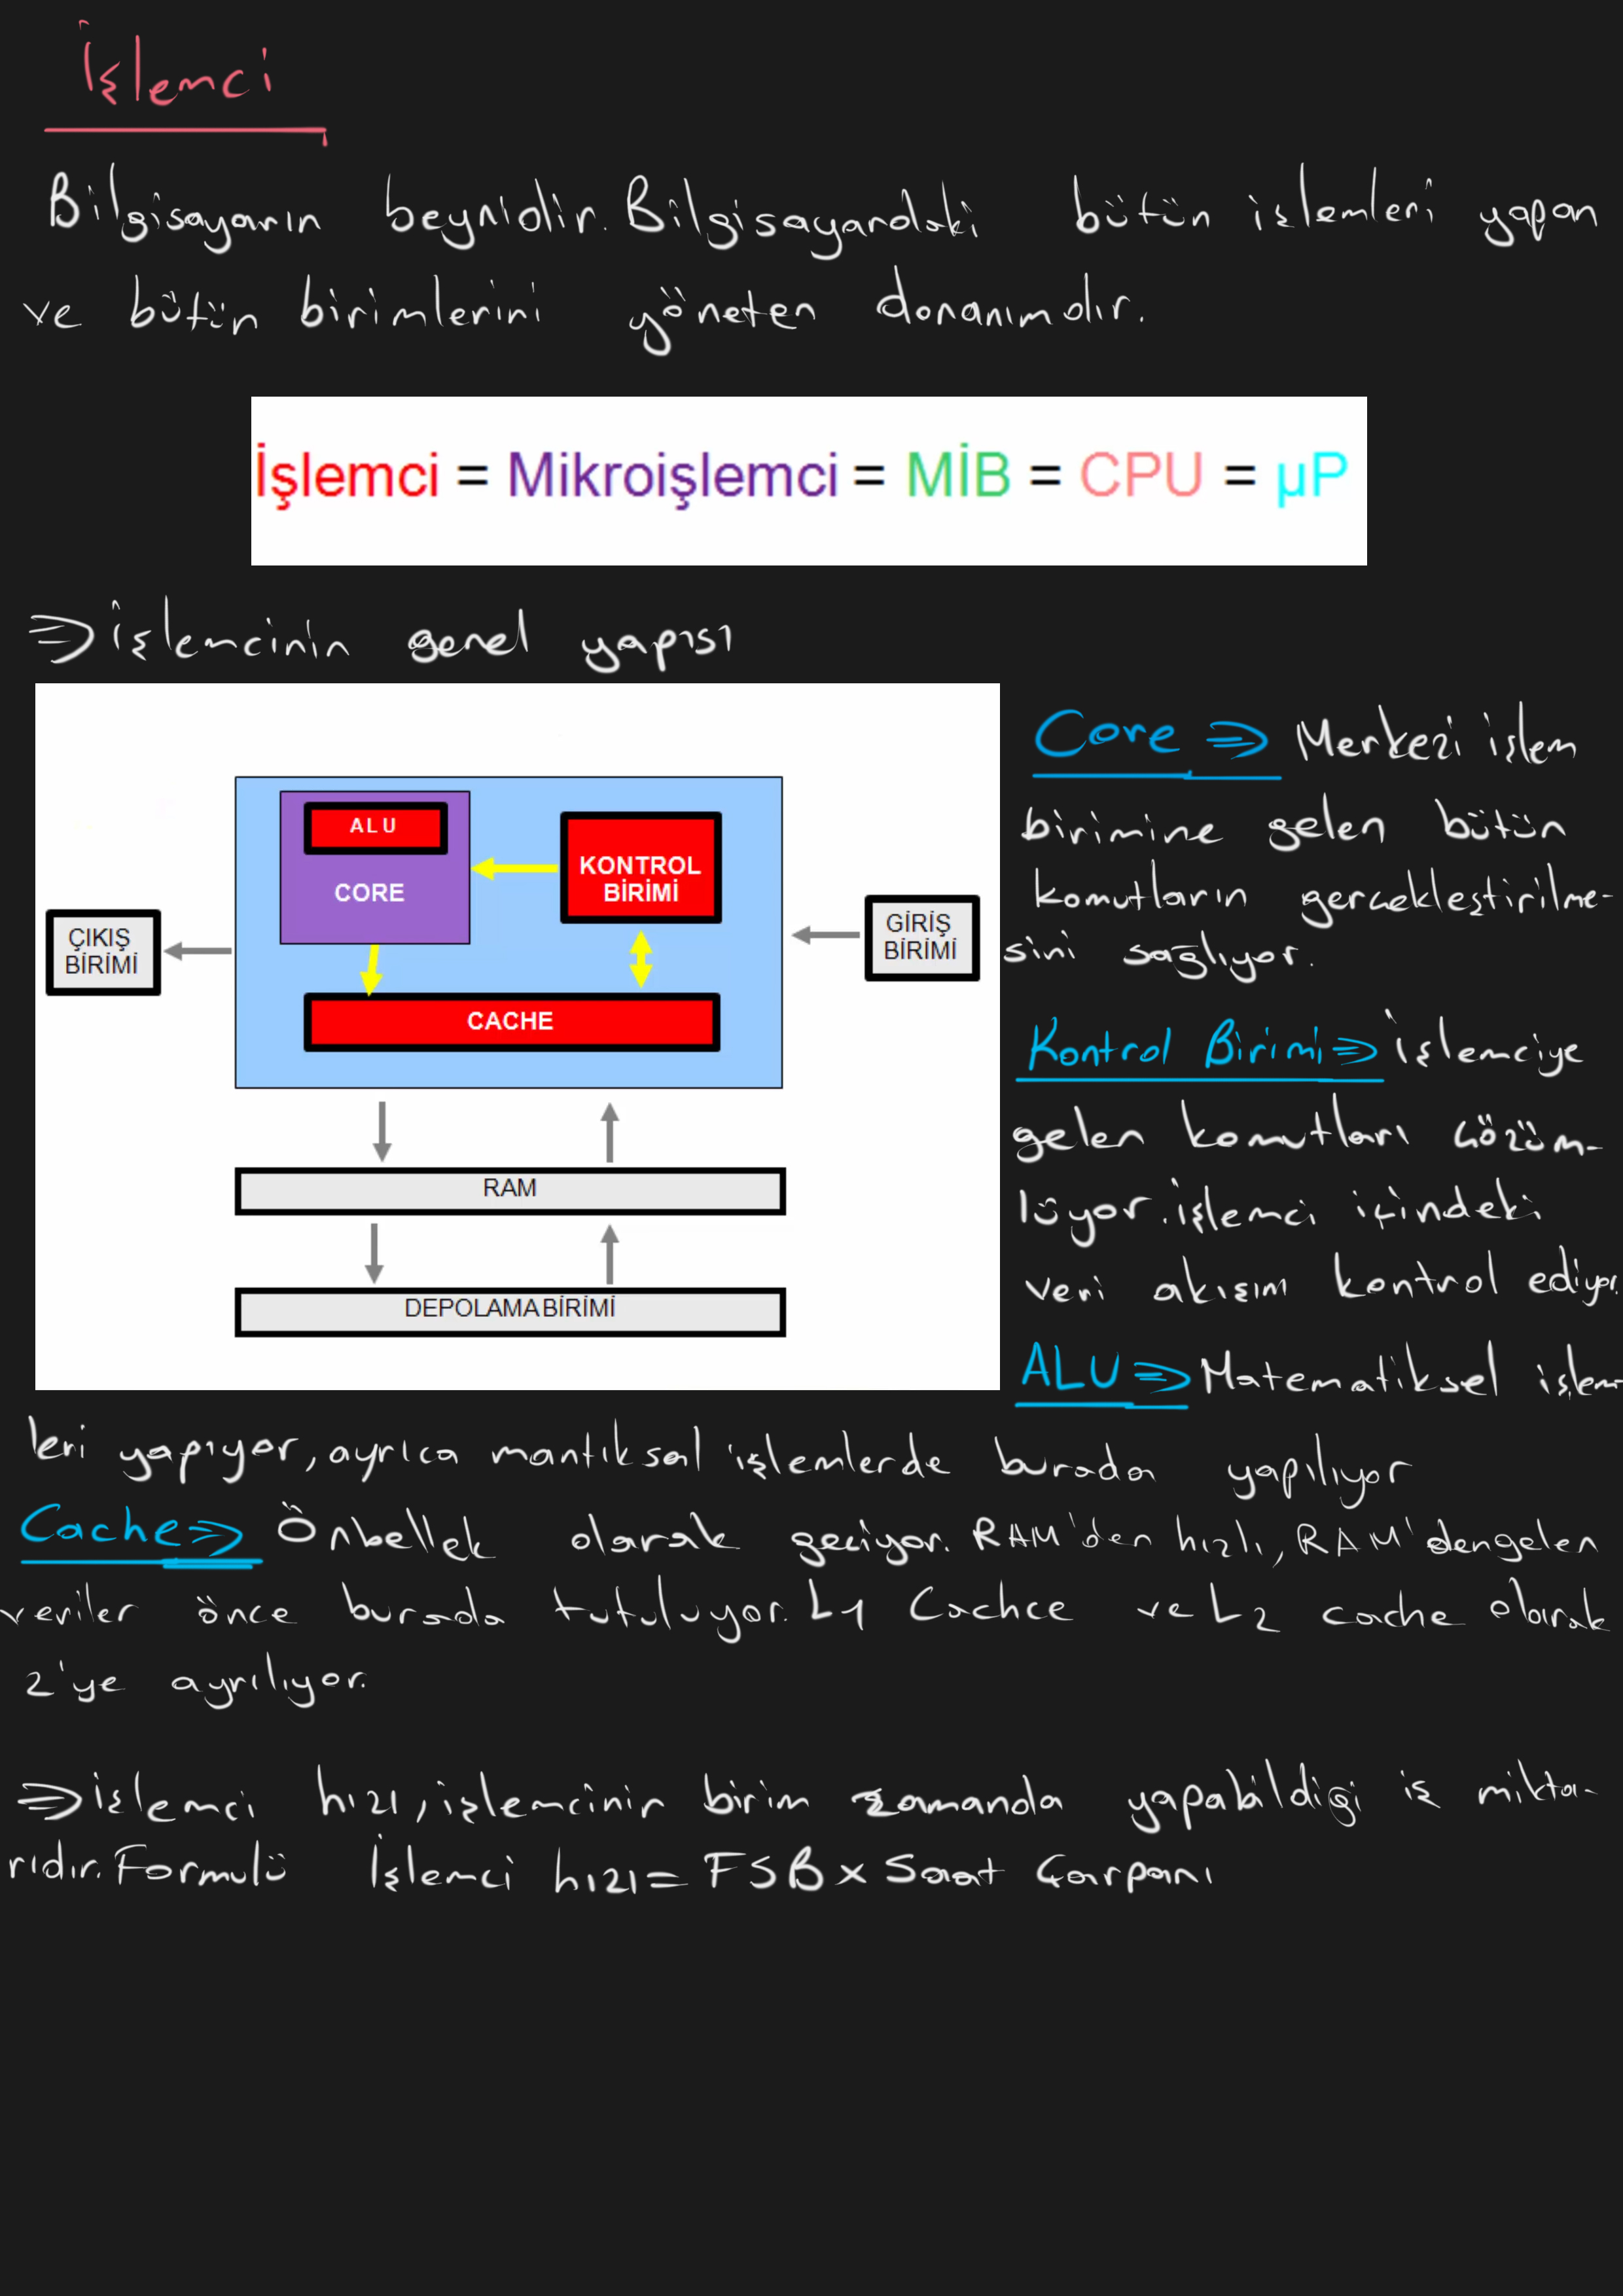 İşlemci
Bilgisayarın beynidir. Bilgisayardaki bütün işlemleri yapan
ve bütün birimlerini yöneten donanımdır.
İşlemci = Mikroişlemci = MİB = CPU = µP
⇒ İşlemcinin genel yapısı
ALU
CORE
KONTROL
BİRİMİ
ÇIKIŞ
BİRİMİ
GİRİŞ
BİRİMİ
CACHE
RAM
DEPOLAMA BİRİMİ
Core ⇒ Merkezi işlem
birimine gelen bütün
komutların gerçekleştirilme-
sini sağlıyor.
Kontrol Birimi ⇒ İşlemciye
gelen komutları çözüm-
lüyor. İşlemci içindeki
veri akışım kontrol ediyor.
ALU ⇒ Matematiksel işlem-
leri yapıyor, ayrıca mantıksal işlemlerde burada yapılıyor
Cache ⇒ Önbellek olarak geçiyor. RAM'den hızlı, RAM'dengelen
veriler önce burada tutuluyor. L1 Cachce ve L2 cache olarak
2'ye ayrılıyor.
⇒ İşlemci hızı, işlemcinin birim zamanda yapabildiği iş mikta-
rıdır. Formulü İşlemci hızı = FSB x Saat Çarpanı